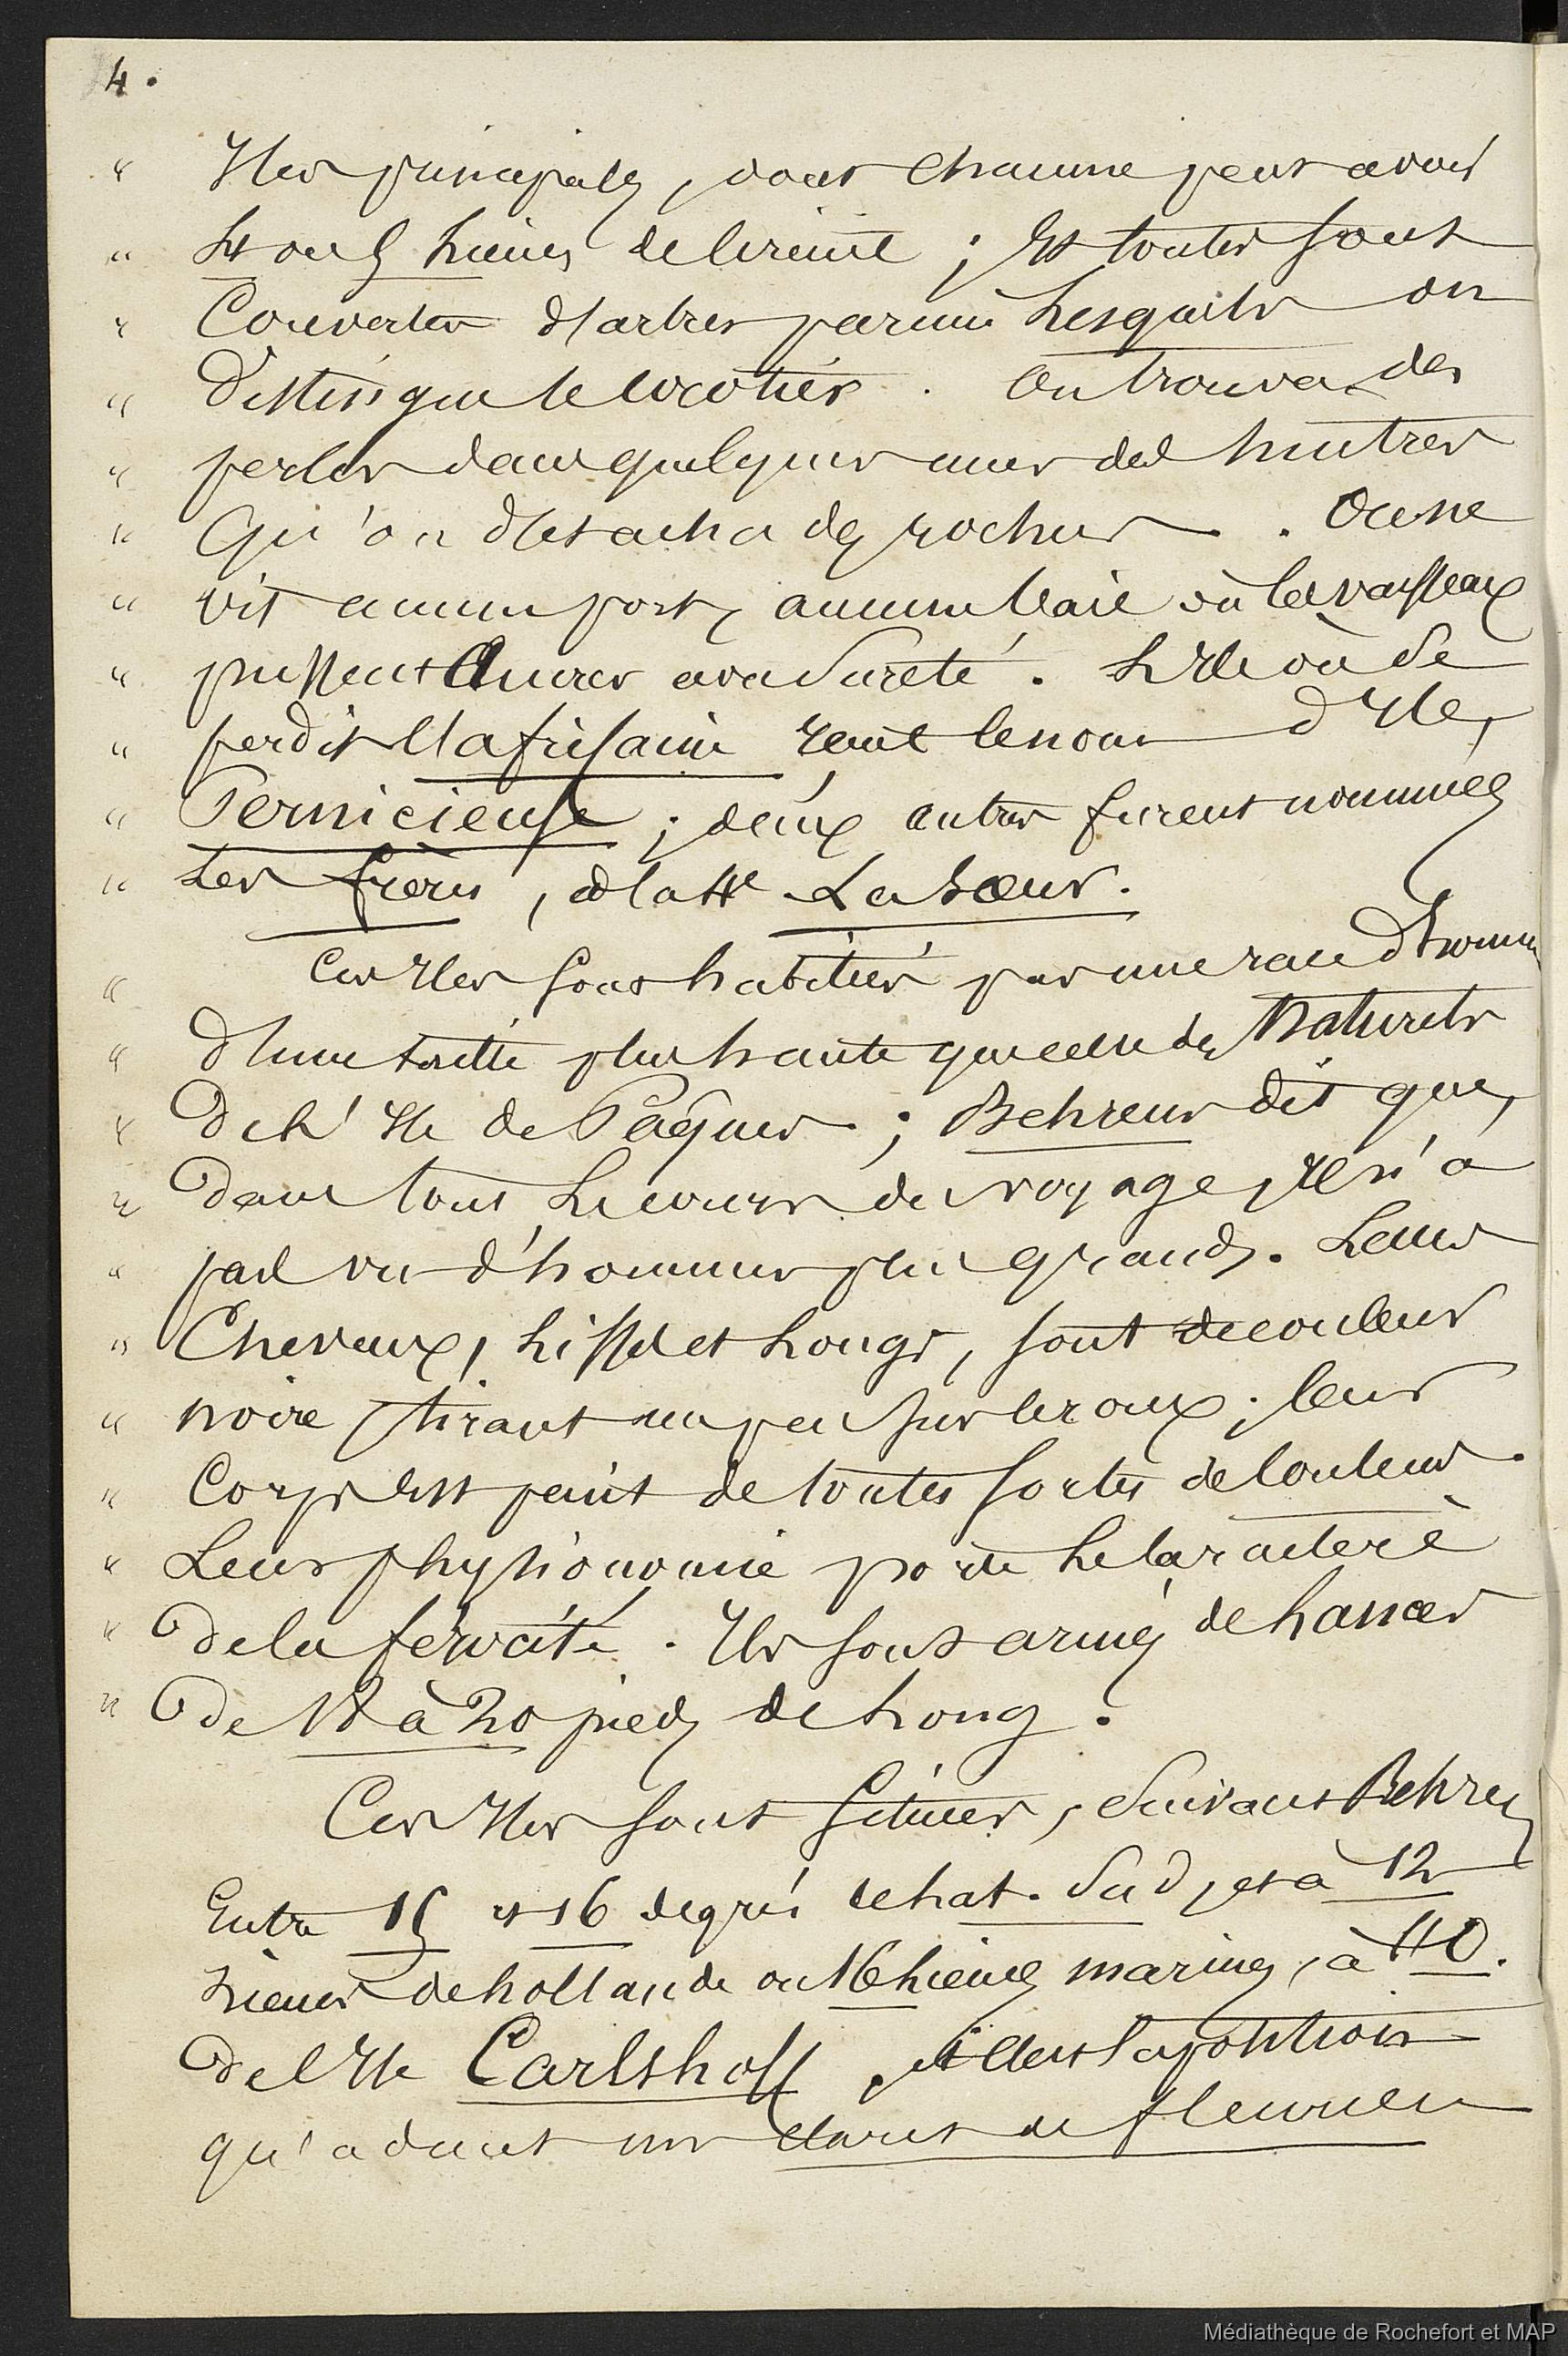 4.
" Iles principales, dont chacune peut avoir
" 4 ou 5 lieues de circuit ; et toutes sont
" Couvertes d'arbres parmi Lesquels on
" distingue le cocotier. On trouva des
" perles dans quelques unes des huitres
" Qu'on détacha des rochers. On ne
" vit aucun port, aucune baie où les vaisseaux
" pussent Ancrer avec Sureté. L'Ile où se
" perdit l'africaine reçut le nom d'Ile,
" Pernicieuse ; deux autres furent nommées
" Les frères, et la 4e La Sœur.
" Ces Iles sont habitées par une race d'hommes
" d'une taille plus haute que celle des Naturels
" De L'Ile de Pâques ; Behrens dit que,
" Dans tout Le cours du voyage, Il n'a
" pas vu d'hommes plus grands. Leurs
" Cheveux, Lisses et Longs, sont de couleur
" noire, tirant un peu sur le roux ; leur
" Corps est peint de toutes sortes de Couleurs.
" Leur physionomie porte Le Caractère
" De la férocité. Ils sont armés de Lances
" De 18 à 20 pieds de Long.
Ces Iles sont situées, Suivant Behrens
Entre 15 et 16 degrés de Lat. Sud, et à 12
Lieues de hollande ou 16 Lieues marines, à l'O.
De l'Ile Carlshoff, et c'est la position
qu'adopte mr Claret de fleurieu
Médiathèque de Rochefort et MAP